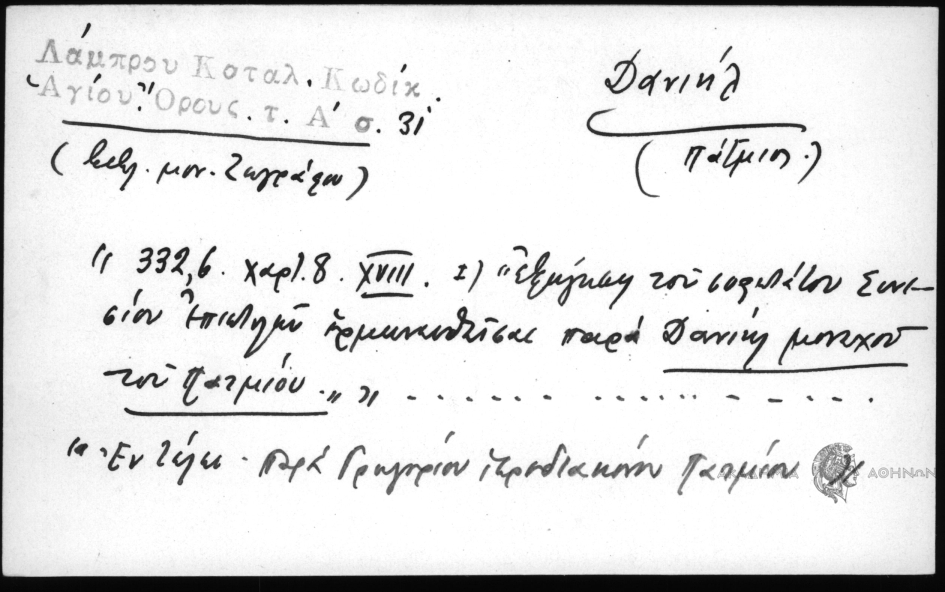 Λάμπρου Καταλ. Κωδίκ.
Ἁγίου Ὄρους. τ. Α΄ σ. 31
(βιβλ. μον. Ζωγράφου)
Δανιήλ
(Πάτμιος.)
" 332,6. χαρτ. 8. XVIII. 1) "Ἐξήγησις τοῦ σοφωτάτου Συνε-
σίου Ἐπιστολῶν ἑρμηνευθεῖσαι παρὰ Δανιὴλ μοναχοῦ
τοῦ Πατμίου. " "
" Ἐν τέλει - Παρὰ Γρηγορίου ἱεροδιακόνου Πατμίου "
ΑΘΗΝΩΝ